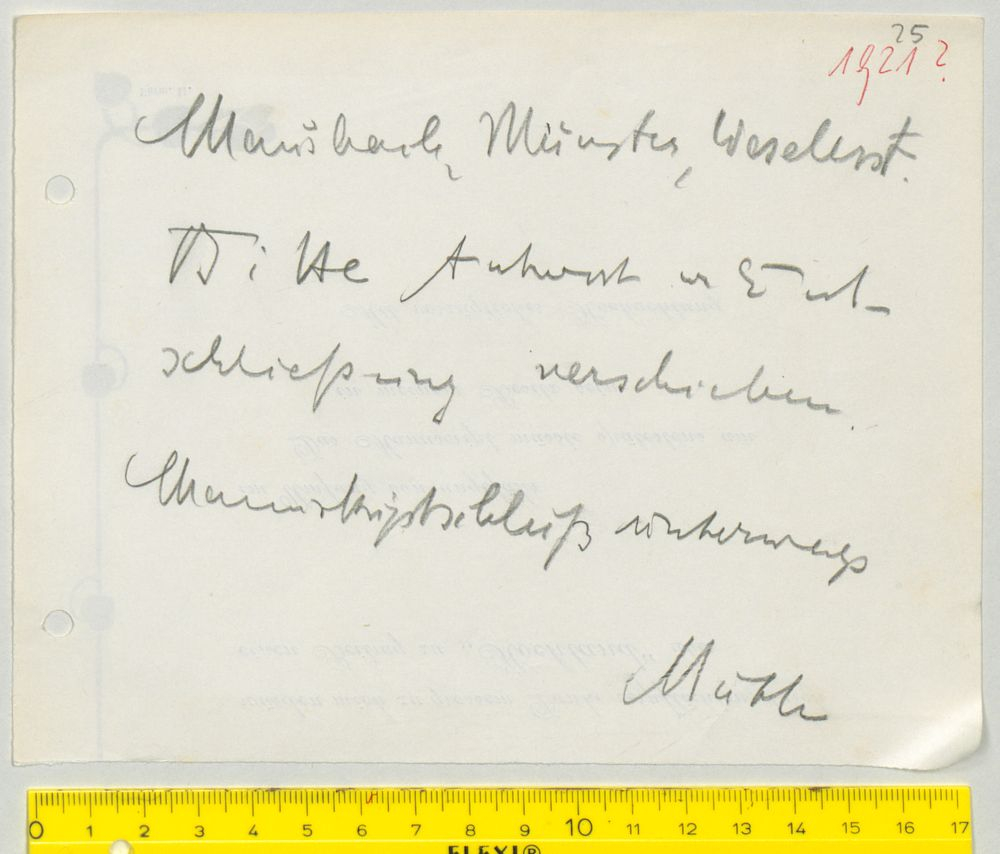 25
1921?
Mausbach, Münster, Weselerst.
Bitte Antwort u Ent-
schließung verschieben.
Manuskriptschluß unterwegs
Muth
0 1 2 3 4 5 6 7 8 9 10 11 12 13 14 15 16 17